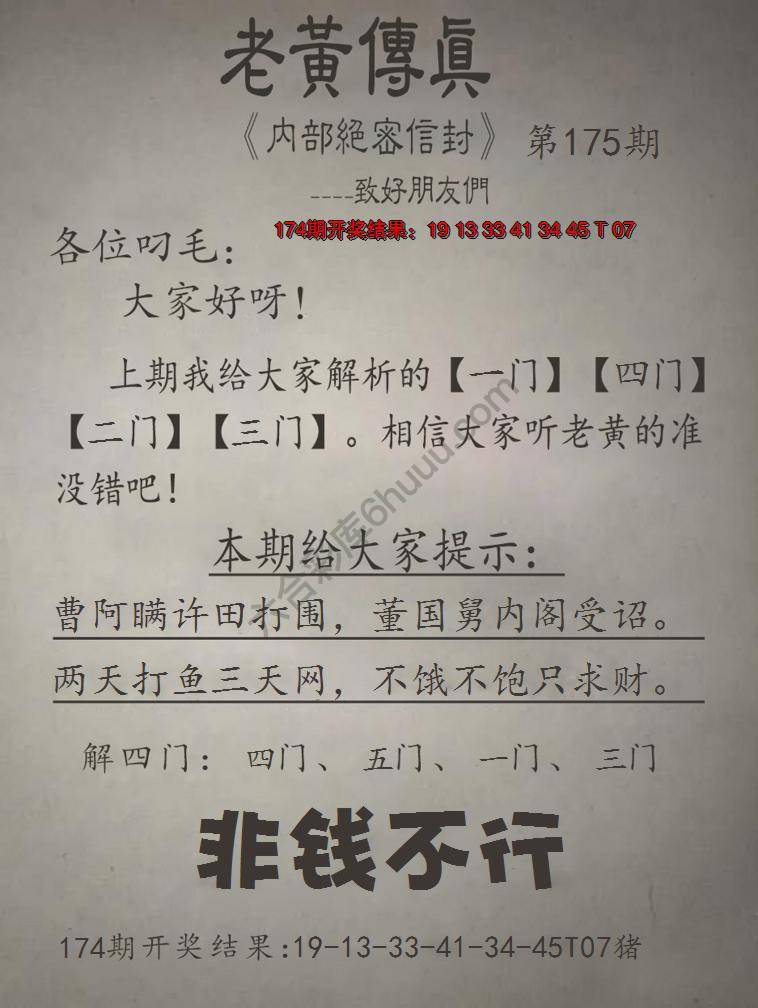 老黃傳眞
《内部絕密信封》 第175期
----致好朋友們
174期开奖结果：19 13 33 41 34 45 T 07
各位叼毛：
大家好呀！
上期我给大家解析的【一门】【四门】
【二门】【三门】。相信大家听老黄的准
没错吧！
本期给大家提示：
曹阿瞒许田打围，董国舅内阁受诏。
两天打鱼三天网，不饿不饱只求财。
解四门： 四门、 五门、 一门、 三门
非钱不行
174期开奖结果:19-13-33-41-34-45T07猪
六合彩库6huuu.com